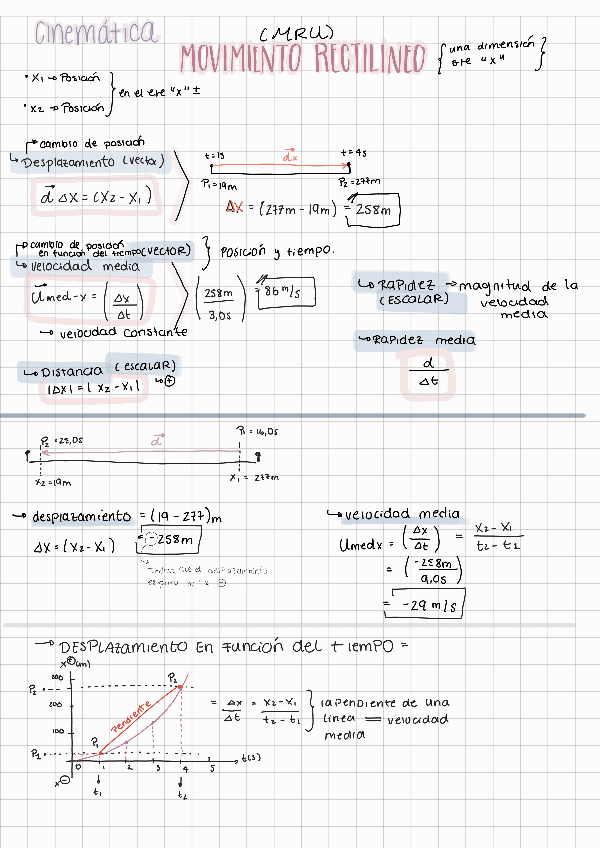 Cinemática
(MRU)
MOVIMIENTO RECTILÍNEO
{una dimensión eje "x"}
• X1 → Posición
• X2 → Posición
en el eje "x" ±
cambio de posición
Desplazamiento (vector)
d⃗ ΔX = (X2 - X1)
t = 1s
t = 4s
d⃗x
P1 = 19m
P2 = 277m
ΔX = (277m - 19m) = 258m
cambio de posición
en función del tiempo (VECTOR)
velocidad media
} Posición y tiempo.
U⃗med-x = (Δx/Δt)
(258m/3,0s) = 86 m/s
→ velocidad constante
RAPIDEZ → magnitud de la
(ESCALAR) velocidad
media
Rapidez media
d/Δt
Distancia (escalar)
|ΔX| = |X2 - X1| ↪⊕
P2 = 25,0s
P1 = 16,0s
d⃗
X2 = 19m
X1 = 277m
→ desplazamiento = (19 - 277)m
ΔX = (X2 - X1) = -258m
velocidad media
Umedx = (Δx/Δt) = X2 - X1/t2 - t1
= (-258m/9,0s)
= -29 m/s
→ DESPLAZAMIENTO EN FUNCIÓN del tIEMPO =
X⊕(m)
300
200
100
P2
P1
P1
P2
Pendiente
0 1 2 3 4 5 t(s)
X⊖
t1
t2
= Δx/Δt = X2 - X1/t2 - t1
la pendiente de una
línea = velocidad
media